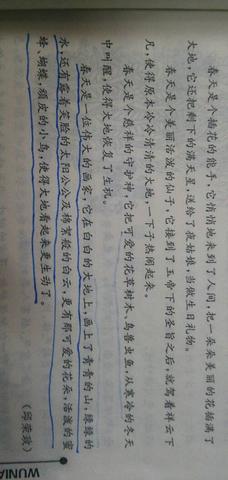 春天是个插花的能手，它悄悄地来到了人间，把一朵朵美丽的花插满了
大地，它还把剩下的满天星，送给了夜姑娘，当做生日礼物。
春天是个美丽活泼的仙子，它接到了玉帝下的圣旨之后，就驾着祥云下
凡，使得原本冷冷清清的大地，一下子热闹起来。
春天是个慈祥的守护神，它把可爱的花草树木、鸟兽虫鱼，从寒冷的冬天
中叫醒，使得大地恢复了生机。
春天是一位伟大的画家，它在白白的大地上，画上了青青的山，绿绿的
水，还有露着笑脸的太阳公公及棉絮般的白云，更有那可爱的花朵，活泼的蜜
蜂、蝴蝶，顽皮的小鸟，使得大地看起来更生动了。
（邱荣璇）
WUNIA